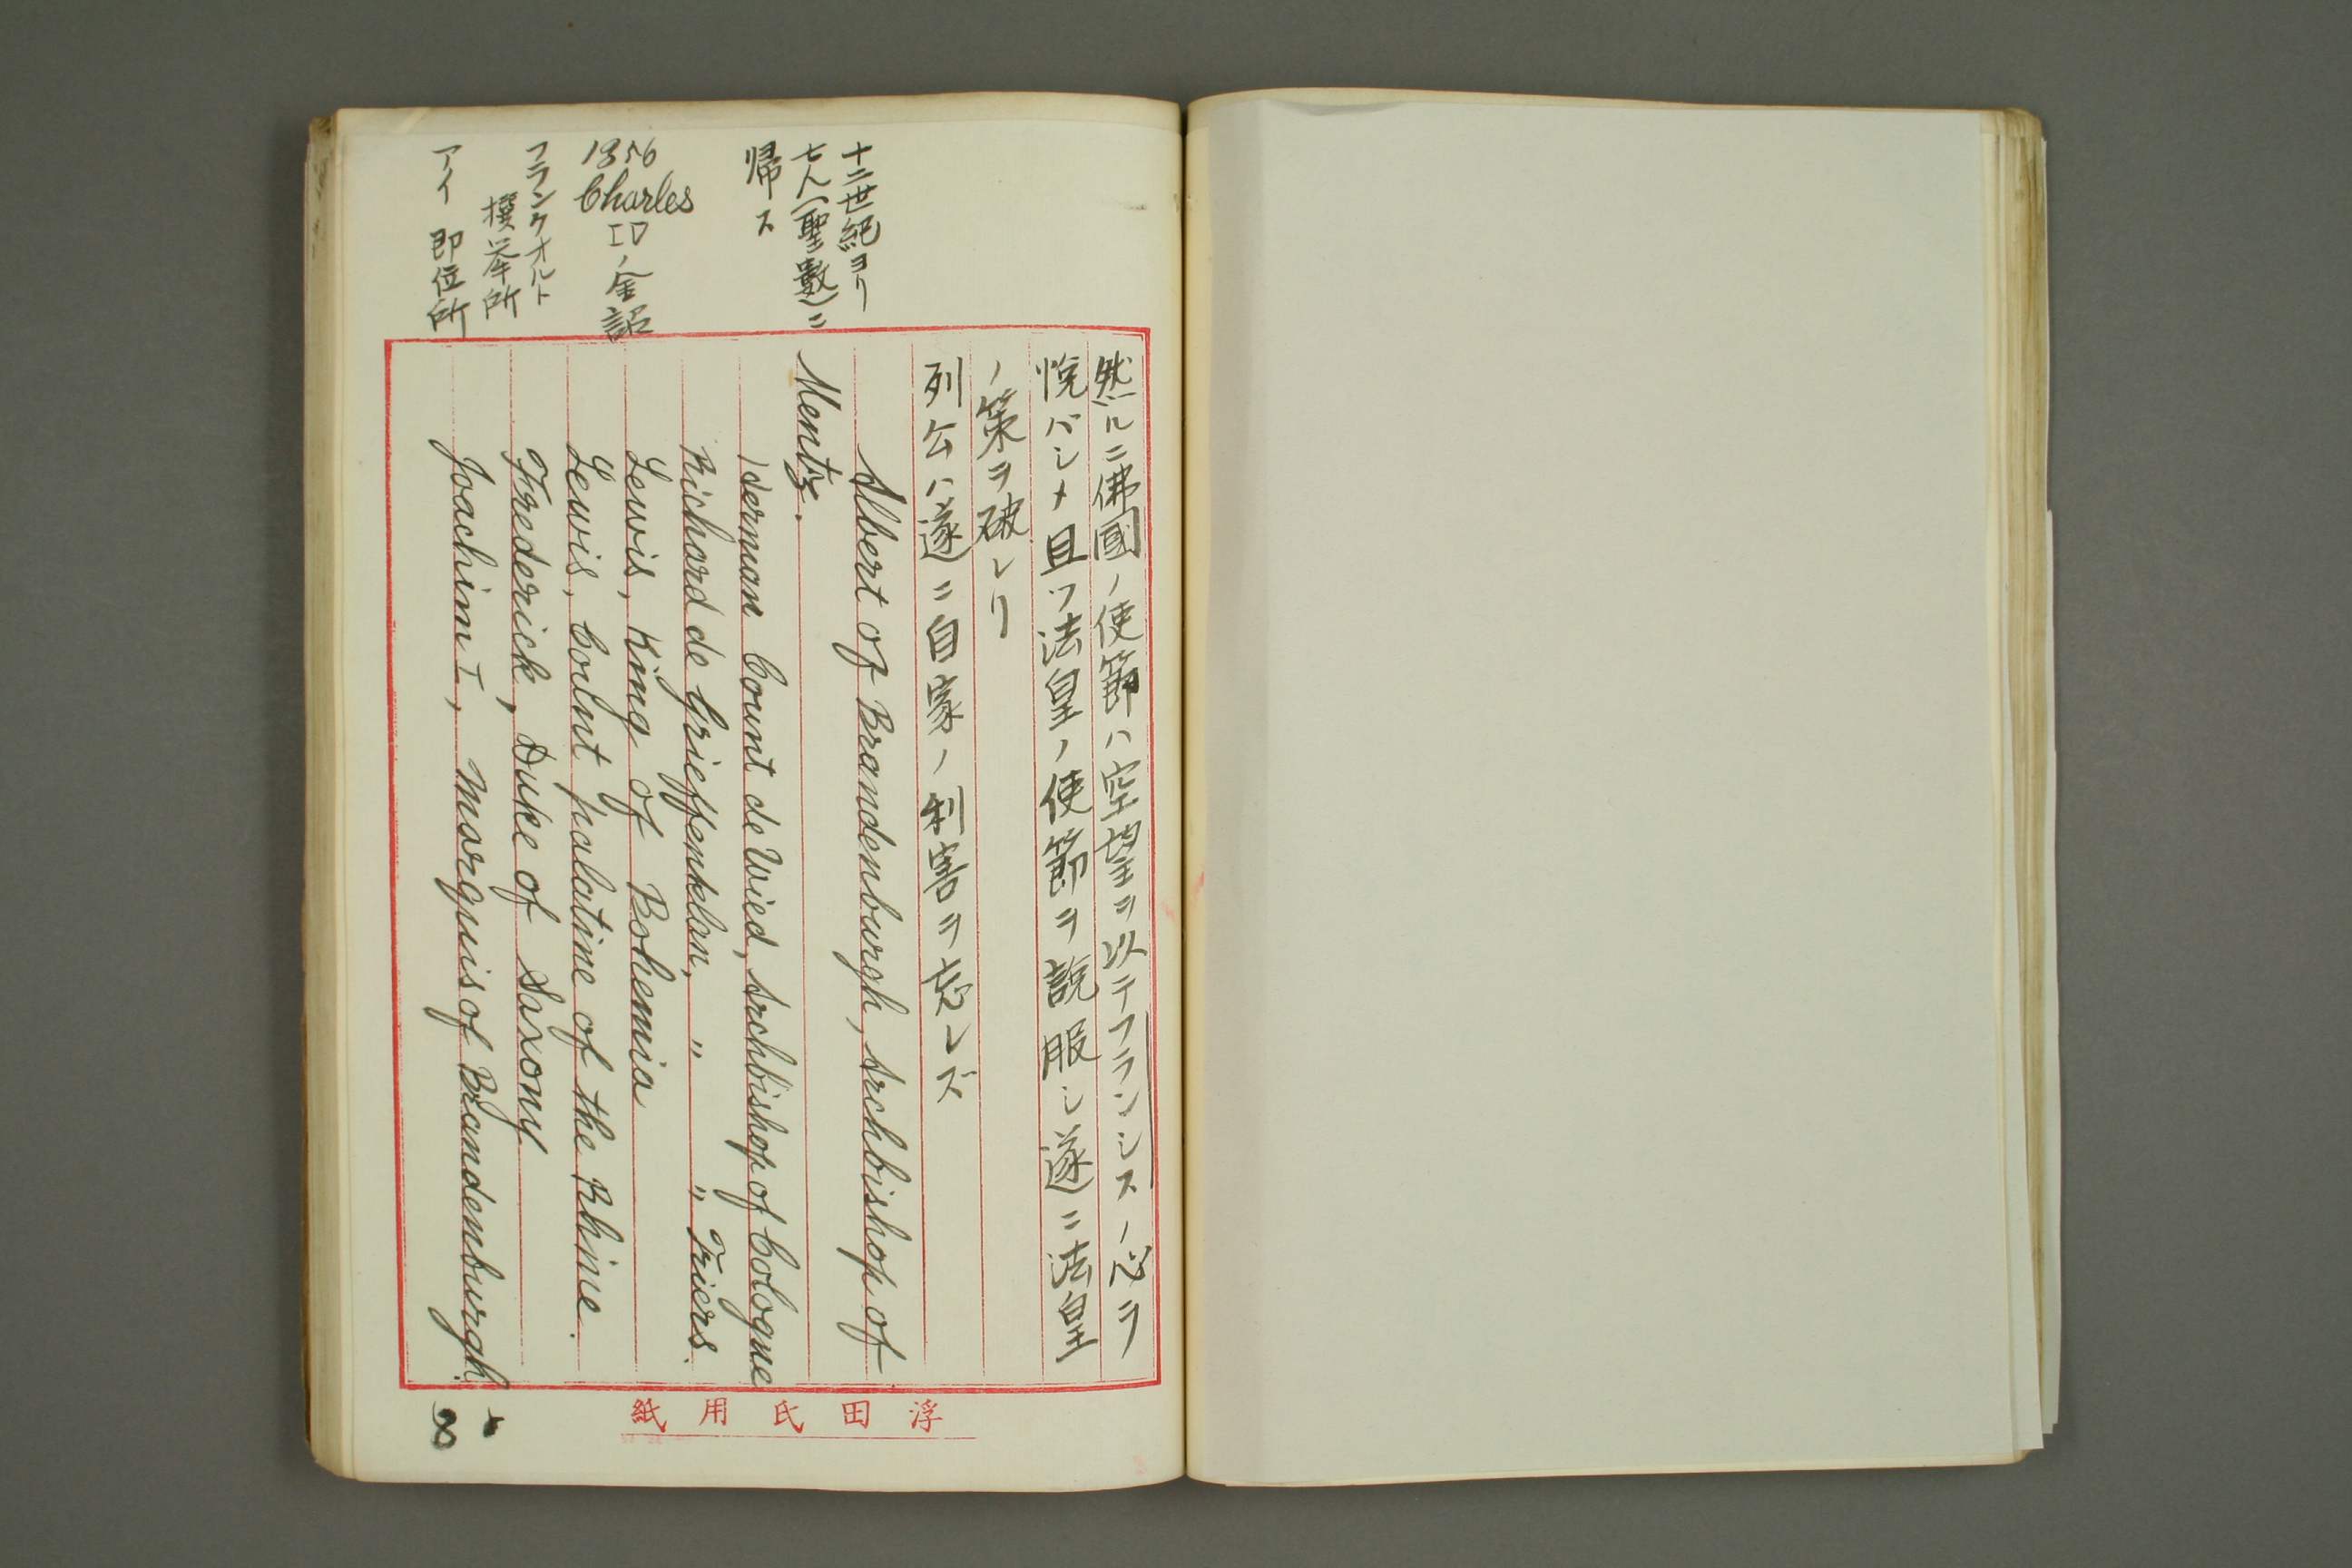 十二世紀ヨリ
七人(聖數)ニ
帰ス
1356
Charles
ノ金詔
フランクオルト
撰挙所
アイ 即位所
然ルニ佛國ノ使節ハ空望ヲ以テフランシスノ心ヲ
悦バシメ且ツ法皇ノ使節ヲ説服シ遂ニ法皇
ノ策ヲ破レリ
列公ハ遂ニ自家ノ利害ヲ忘レズ
Albert of Brandenburgh, Archbishop of
Mentz.
Herman Count de Wied, Archbishop of Cologne
Richard de Grieffenklan, " " Triers.
Lewis, King of Bohemia
Lewis, Count palatine of the Rhine.
Frederick, Duke of Saxony
Joachim I, Marquis of Brandenburgh.
浮田氏用紙
8